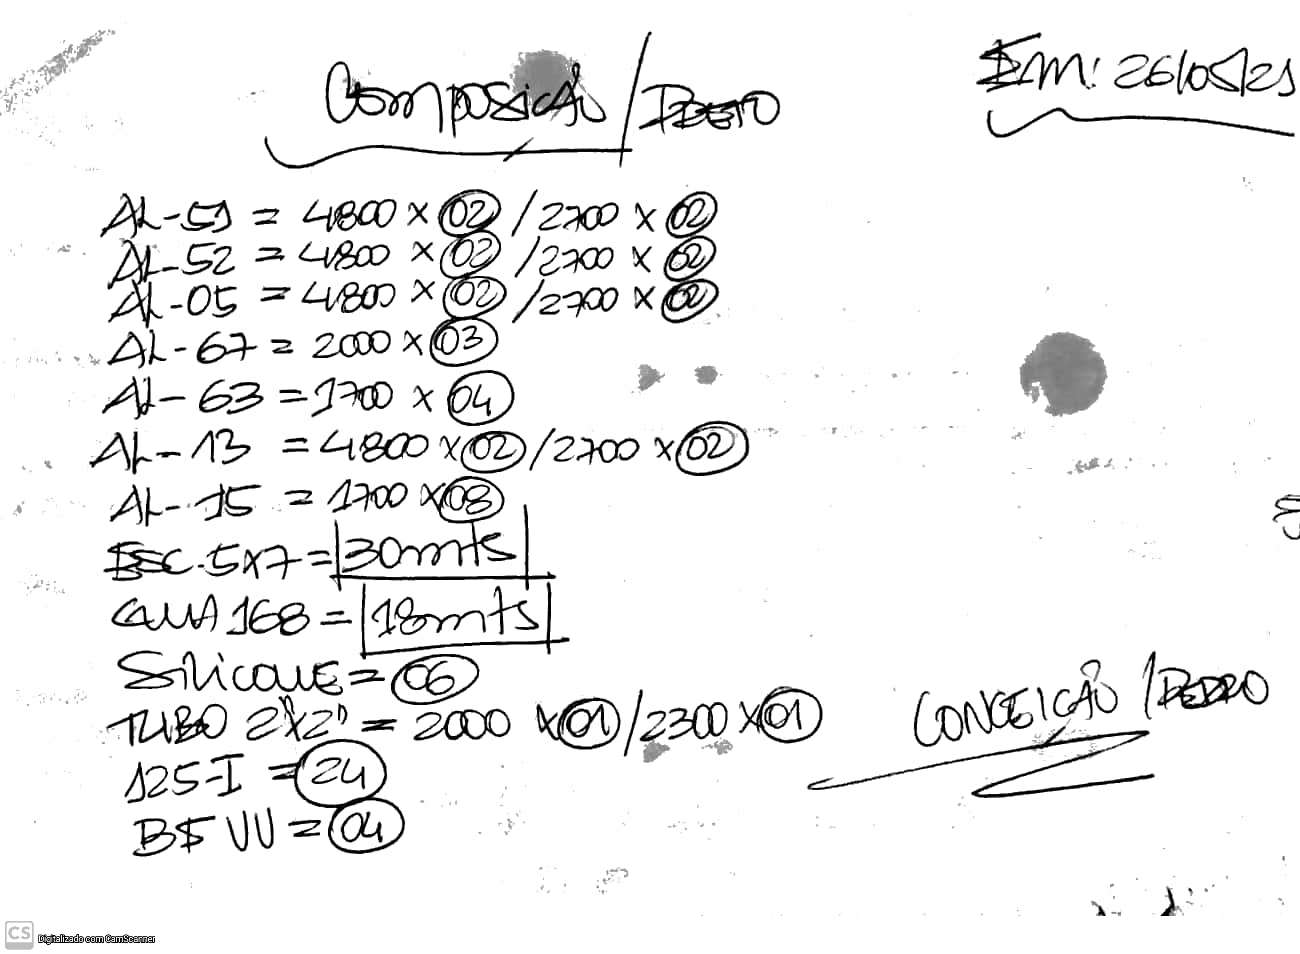 Composição / PRETO
Em: 26/05/21
AL-51 = 4800 x 02 / 2700 x 02
AL-52 = 4800 x 02 / 2700 x 02
AL-05 = 4800 x 02 / 2700 x 02
AL-67 = 2000 x 03
AL-63 = 1700 x 04
AL-13 = 4800 x 02 / 2700 x 02
AL-15 = 1700 x 08
ESC.5x7 = 30mts
GUA 168 = 18mts
SiLiCONE = 06
TUBO 2"x2" = 2000 x 01 / 2300 x 01
CONCEIÇÃO / PEDRO
125-I = 24
VV = 04
CS Digitalizado com CamScanner